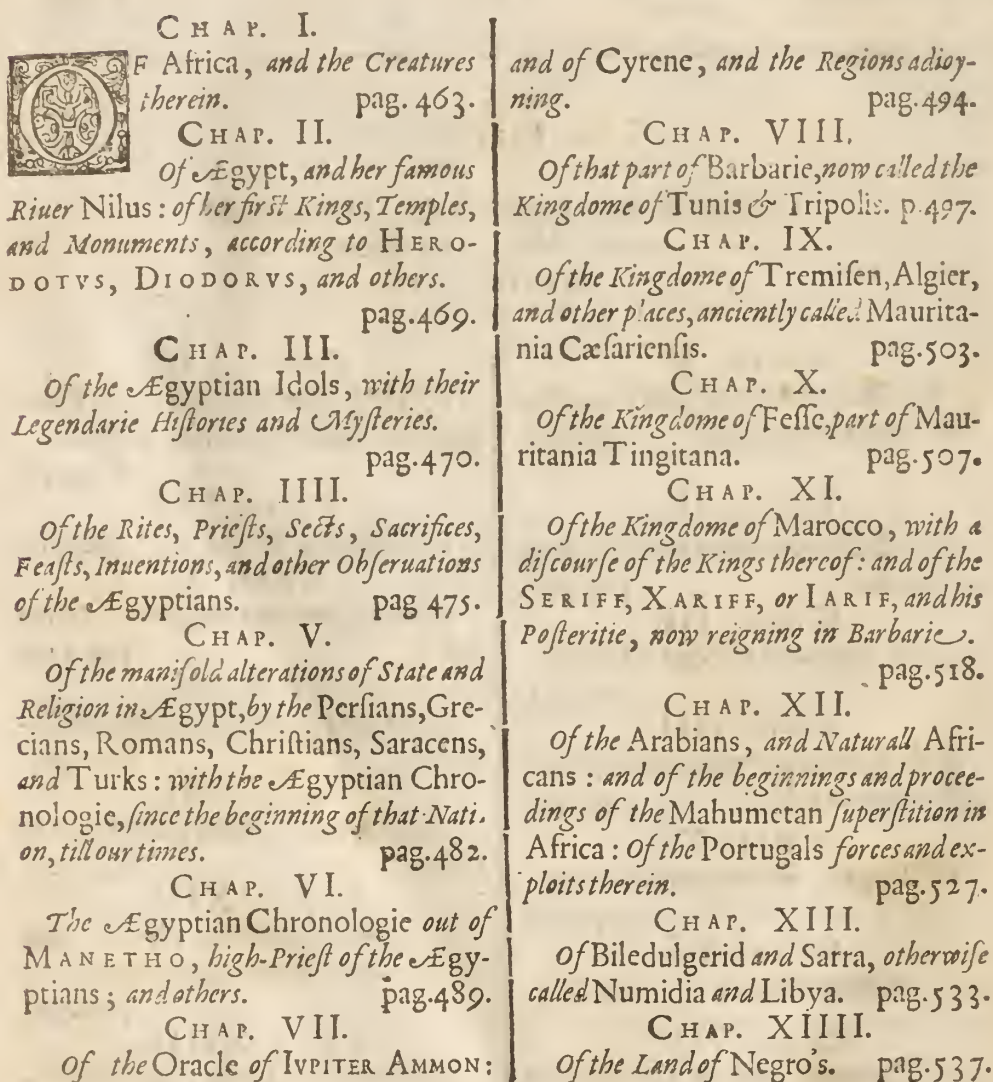 CHAP. I.
OF Africa, and the Creatures
therein. pag. 463.
CHAP. II.
Of Ægypt, and her famous
Riuer Nilus : of her first Kings, Temples,
and Monuments, according to HERO-
DOTVS, DIODORVS, and others.
pag.469.
CHAP. III.
Of the Ægyptian Idols, with their
Legendarie Hiſtories and Myſteries.
pag.470.
CHAP. IIII.
Of the Rites, Prieſts, Sects, Sacrifices,
Feaſts, Inuentions, and other Obſeruations
of the Ægyptians. pag 475.
CHAP. V.
Of the manifold alterations of State and
Religion in Ægypt, by the Perſians, Gre-
cians, Romans, Chriſtians, Saracens,
and Turks : with the Ægyptian Chro-
nologie, ſince the beginning of that Nati-
on, till our times. pag.482.
CHAP. VI.
The Ægyptian Chronologie out of
MANETHO, high-Prieſt of the Ægy-
ptians ; and others. pag.489.
CHAP. VII.
Of the Oracle of IVPITER AMMON :
and of Cyrene, and the Regions adioy-
ning. pag.494.
CHAP. VIII.
Of that part of Barbarie, now called the
Kingdome of Tunis & Tripolis. p.497.
CHAP. IX.
Of the Kingdome of Tremiſen, Algier,
and other places, anciently called Maurita-
nia Cæſarienſis. pag.503.
CHAP. X.
Of the Kingdome of Feſſe, part of Mau-
ritania Tingitana. pag.507.
CHAP. XI.
Of the Kingdome of Marocco, with a
diſcourſe of the Kings thereof : and of the
SERIFF, XARIFF, or IARIF, and his
Poſteritie, now reigning in Barbarie.
pag.518.
CHAP. XII.
Of the Arabians, and Naturall Afri-
cans : and of the beginnings and procee-
dings of the Mahumetan ſuperſtition in
Africa : Of the Portugals forces and ex-
ploits therein. pag.527.
CHAP. XIII.
Of Biledulgerid and Sarra, otherwiſe
called Numidia and Libya. pag.533.
CHAP. XIIII.
Of the Land of Negro's. pag.537.